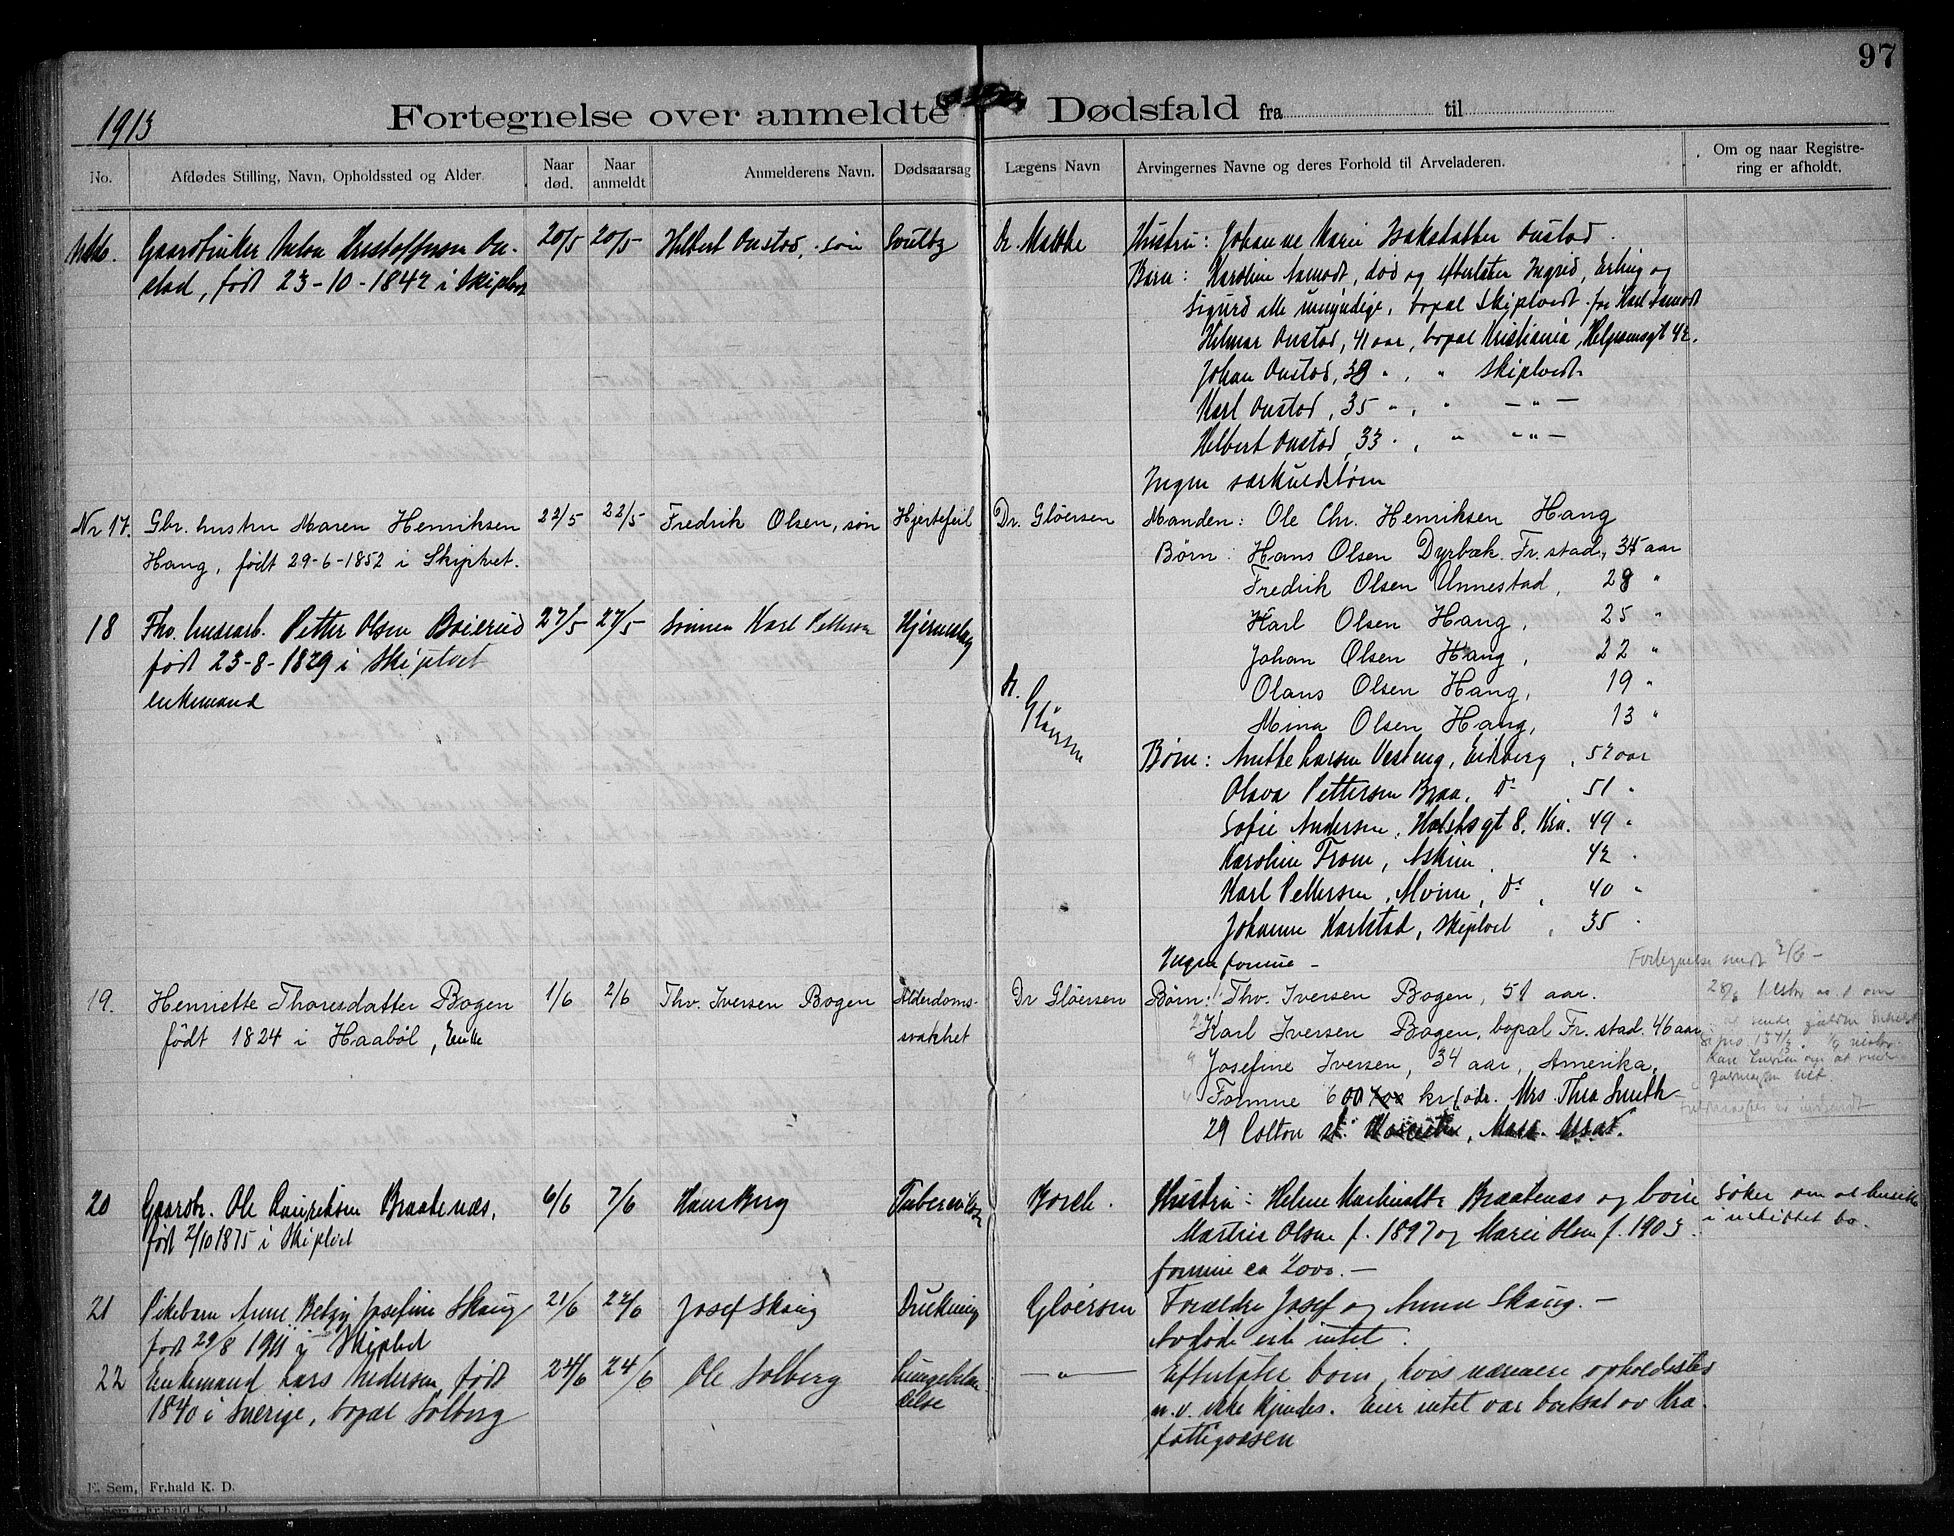 97
1913
Fortegnelse over anmeldte Dødsfald fra til
No. Afdødes Stilling, Navn, Opholdssted og Alder. Naar død. Naar anmeldt Anmelderens Navn. Dødsaarsag Lægens Navn Arvingernes Navne og deres Forhold til Arveladeren. Om og naar Registrering er afholdt.
Gaardbruker Anton Kristoffersen On-
stad, født 23-10-1842 i Skiptvet
20/5 20/5 Helbert Onstad, søn
Dr.
Hustru: Johanne Marie Isaksdatter Onstad.
Barn: Karoline Aamodt, død og efterlater Ingrid, Erling og
Sigurd alle umyndige, bopæl Skiptvedt. for Karl Aamodt
Helmer Onstad, 41 aar, bopæl Kristiania, Helgesensgt 42.
Johan Onstad, 39 " , " Skiptvedt
Karl Onstad, 35 " , " — " —
Helbert Onstad, 33 " , " — " —
Ingen særkuldsbørn
Nr 17. Gbr. hustru Maren Henriksen
Haug, født 29-6-1852 i Skiptvet.
22/5 22/5 Fredrik Olsen, søn Hjertefeil Dr. Gløersen
Manden: Ole Chr. Henriksen Haug
Børn: Hans Olsen Dyrbæk. Fr.stad, 35 aar
Fredrik Olsen Unnestad, 28 "
Karl Olsen Haug, 25 "
Johan Olsen Haug, 22 "
Olaus Olsen Haug, 19 "
Mina Olsen Haug, 13 "
18 Fhv. husarb. Petter Olsen Boierud
født 23-8-1829 i Skiptvet
enkemand
27/5 27/5 Sønnen Karl Pettersen Hjerneslag Dr. Gløersen
Børn: Anette Larsen Vesteng, Eidsberg, 52 aar
Olava Pettersen Braa, do 51 "
Sofie Andersen, Holstsgt 8. Kra. 49 "
Karoline From, Askim, 42 "
Karl Pettersen, Moine, do, 40 "
Johanne Karlstad, Skiptvet, 35 "
Ingen formue —
Fortegnelse sendt 2/6 —
19. Henriette Thoresdatter Bogen
født 1824 i Haabøl, Enke
1/6 2/6 Thv. Iversen Bogen Alderdoms-
svakhet
Dr Gløersen
Børn: 1 Thv. Iversen Bogen, 51 aar.
2 Karl Iversen Bogen, bopæl Fr.stad 46 aar
Josefine Iversen, 34 aar, Amerika,
Formue 600 700 kr (adr. Mrs. Thea Smith
29 Colton st. Mass.
20 Gaardbr. Ole Lauritsen Braatenæs,
født 2/10 1875 i Skiptvet
6/6 7/6 Hans Berg Tuberculose Borch.
Hustru: Helene Braatenæs og børn
Martin Olsen f. 1897 og Marie Olsen f. 1903
formue ca 2000. —
Søker om at hensitte
i uskiftet bo.
21 Pikebarn Anne Betzy Josefine Skaug
født 29/8 1911 i Skiptvet
21/6 22/6 Josef Skaug Drukning Gløersen
Forældre Josef og Anna Skaug. —
Avdøde eide intet.
22 Enkemand Lars Andersen, født
1840 i Sverige, bopæl Solberg
24/6 24/6 Ole Solberg Lungebetæn-
delse
— " —
Efterlater børn, hvis nærmere opholdssted
n.v. ikke kjendes. Eier intet var bortsat av Kra.
fattigvæsen
E. Sem, Fr.hald K. D.
E. Sem, Fr.hald K. D.